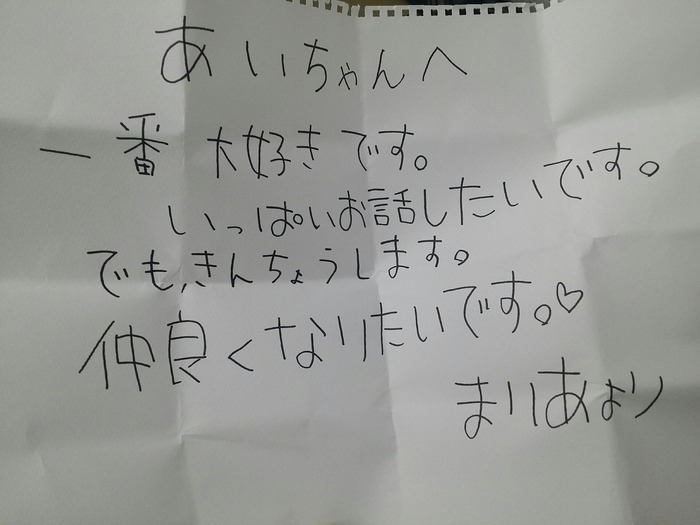 あいちゃんへ
一番 大好きです。
いっぱいお話したいです。
でも、きんちょうします。
仲良くなりたいです。♡
まりあより